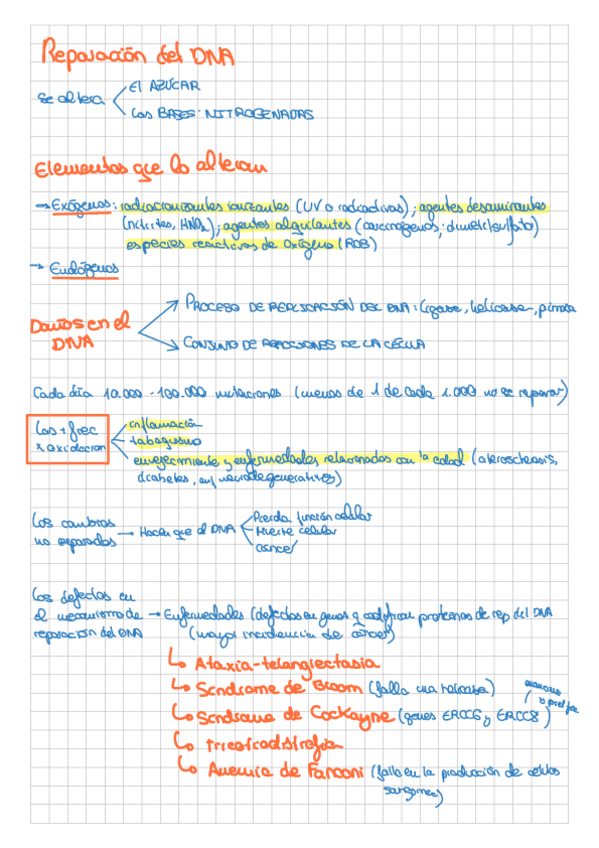 Reparación del DNA
Se altera
El AZÚCAR
Las BASES NITROGENADAS
Elementos que lo alteran
→ Exógenos: radiaciones ionizantes (UV o radiactivas); agentes desaminantes
(nitritos, HNO2); agentes alquilantes (carcinógenos; dimetilsulfato)
especies reactivas de oxígeno (ROS)
→ Endógenos
Daños en el
DNA
PROCESO DE REPLICACIÓN DEL DNA: ligasa, helicasa
CONJUNTO DE REACCIONES DE LA CÉLULA
Cada día 10.000 - 100.000 mutaciones (menos de 1 de cada 1.000 no se reparan)
Las + frec
x oxidación
inflamación
tabaquismo
envejecimiento y enfermedades relacionadas con la edad (aterosclerosis,
diabetes, enf neurodegenerativas)
Los cambios
no reparados
→ Hacen que el DNA
Pierda función celular
Muerte celular
cáncer
Los defectos en
el mecanismo de
reparación del DNA
→ Enfermedades (defectos en genes q codifican proteínas de rep del DNA
(mayor incidencia de cáncer)
↳ Ataxia-telangiectasia
↳ Síndrome de Bloom (falla una helicasa)
↳ Síndrome de Cockayne (genes ERCC6 y ERCC8)
↳ tricotiodistrofia
↳ Anemia de Fanconi (fallo en la producción de células
sanguíneas)